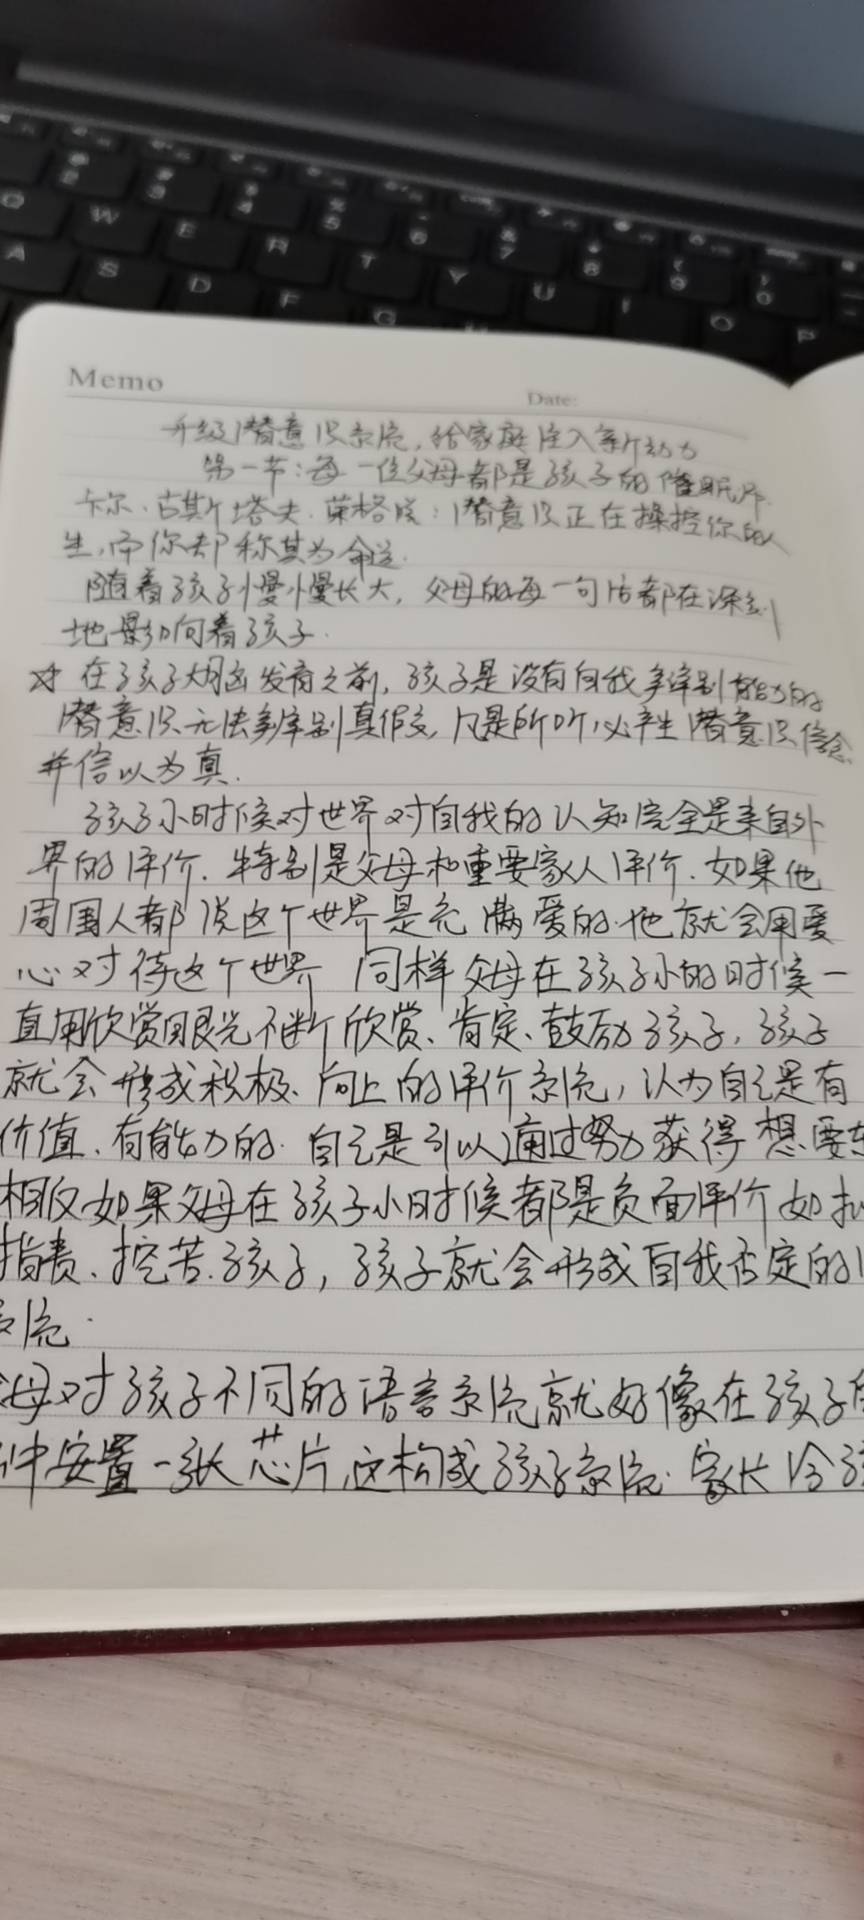 Memo
Date:
升级潜意识系统，给家庭注入新动力
第一节：每一位父母都是孩子的催眠师.
卡尔·古斯塔夫·荣格说：潜意识正在操控你的人
生，而你却称其为命运.
随着孩子慢慢长大，父母的每一句话都在深刻
地影响着孩子.
☆ 在孩子大脑发育之前，孩子是没有自我辨别能力的
潜意识无法辨别真假，凡是所听，必产生潜意识信念
并信以为真.
孩子小时候对世界对自我的认知完全是来自外
界的评价. 特别是父母和重要家人评价. 如果他
周围人都说这个世界是充满爱的. 他就会用爱
心对待这个世界 同样父母在孩子小的时候一
直用欣赏眼光不断欣赏、肯定、鼓励孩子，孩子
就会形成积极、向上的评价系统，认为自己是有
价值、有能力的. 自己是可以通过努力获得想要
相反如果父母在孩子小时候都是负面评价如
指责、挖苦.孩子，孩子就会形成自我否定的
系统.
母对孩子不同的语言系统就好像在孩子
中安置一张芯片，这构成孩子系统. 家长给孩